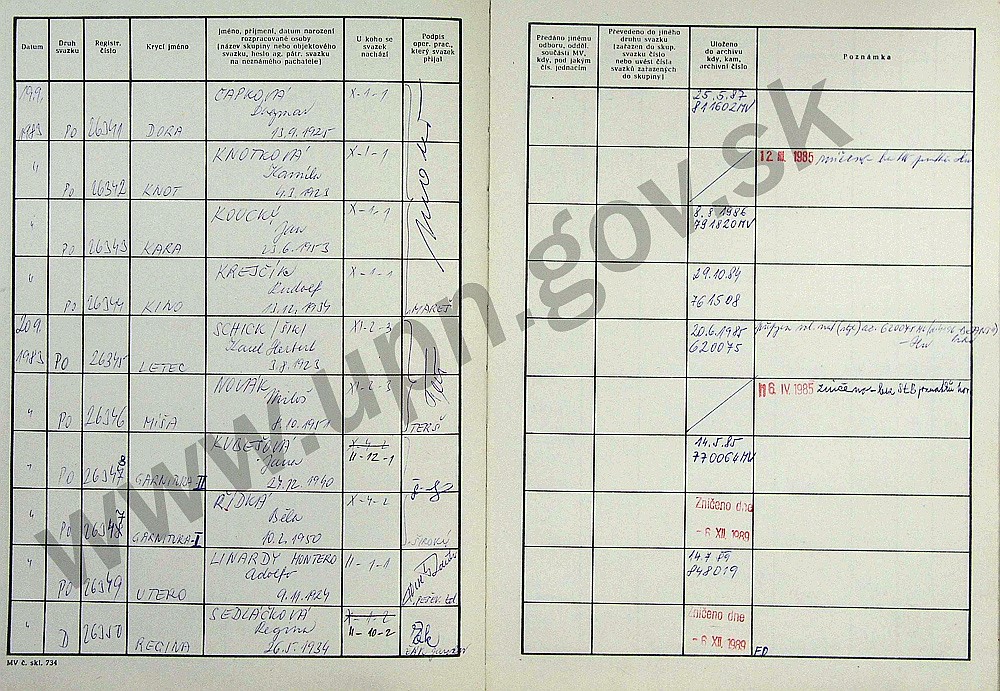 Datum
Druh svazku
Registr. číslo
Krycí jméno
Jméno, příjmení, datum narození
rozpracované osoby
(název skupiny nebo objektového
svazku, heslo ag. pátr. svazku
na neznámého pachatele)
U koho se svazek nachází
Podpis oper. prac., který svazek přijal
Předáno jinému odboru, odděl. součásti MV, kdy, pod jakým čís. jednacím
Převedeno do jiného druhu svazku (zařazen do skup. svazku číslo nebo uvést čísla svazků zařazených do skupiny)
Uloženo do archivu kdy, kam, archivní číslo
Poznámka
19.9. ČAPKOVÁ X-1-1 25.5.87
Dagmar 811602MV
1983 PO 26341 DORA 13.9.1925
" KNOTKOVÁ X-1-1 12. III. 1985 zničeno
Kamila
PO 26342 KNOT 4.3.1923
" KOUCKÝ X-1-1 8.8.1986
Jan 791820MV
PO 26343 KARA 23.6.1953
" KREJČÍK X-1-1 29.10.84
Rudolf
PO 26344 KINO 13.12.1934 MAREŠ 761508
20.9. SCHICK /ŠIK/ XI-2-3 20.6.1985
Karel Herbert 620075
1983 PO 26345 LETEC 3.8.1923
" NOVÁK XI-2-3 IV. 1985 zničeno - bez StB
Miloš
PO 26346 MÍŠA 8.10.1951 TERŠ
" KUBEŠOVÁ X-4-2 14.5.85
Jana II-12-1 770064MV
PO 263478 GARNITURA-II 24.12.1940
" ŘÍDKÁ X-4-2 Zničeno dne
Běla
PO 26348 7 GARNITURA-I 10.2.1950 ŠIROKÝ -6. XII. 1989
" LINARDY MONTERO II-1-1 14.7.89
Adolfo 848019
PO 26349 UTERO 9.11.1924
" SEDLÁČKOVÁ X-1-2 Zničeno dne
Regina II-10-2
D 26350 REGINA 26.5.1934 -6. XII. 1989 FD
MV č. skl. 734
www.upn.gov.sk